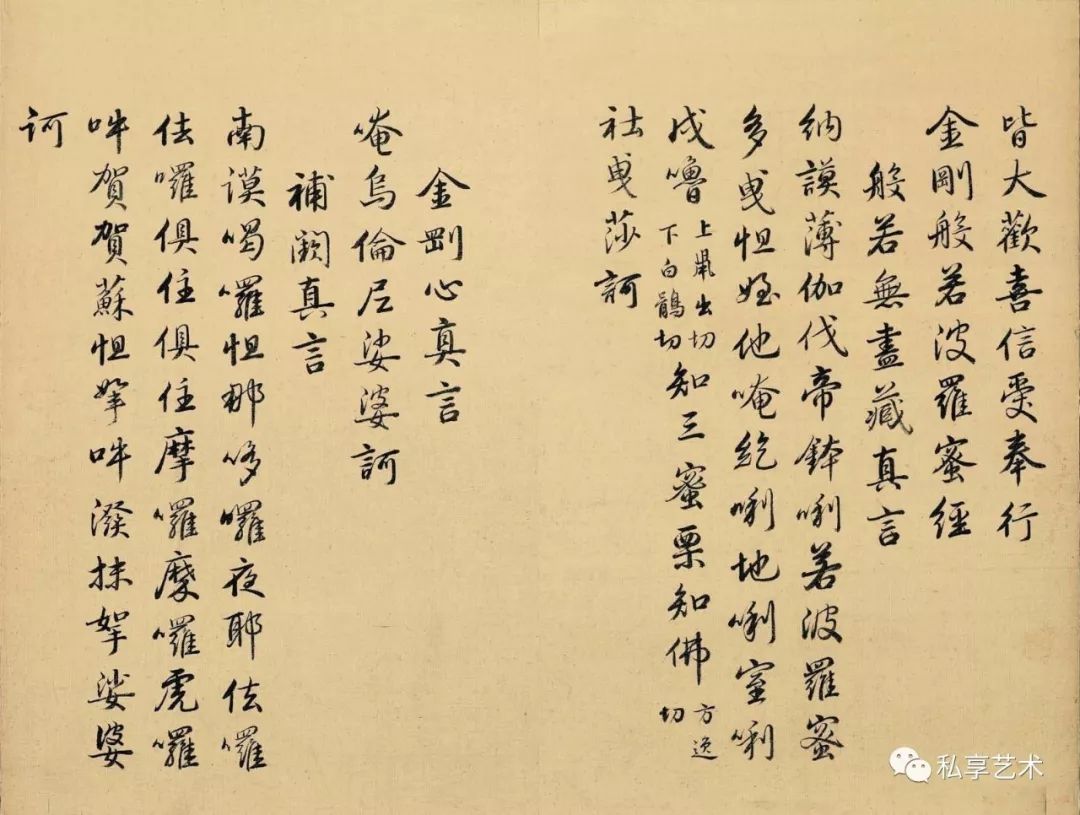 皆大歡喜信受奉行
金剛般若波羅蜜經
般若無盡藏真言
納謨薄伽伐帝鉢唎若波羅蜜
多曳怛姪他唵紇唎地唎室唎
戍嚕上鼡出切下白鶻切知三蜜栗知佛方逸切
社曳莎訶
金剛心真言
唵烏倫尼娑婆訶
補闕真言
南謨喝囉怛那哆囉夜耶佉囉
佉囉俱住俱住摩囉摩囉虎囉
吽賀賀蘇怛拏吽潑抹拏娑婆
訶
私享艺术